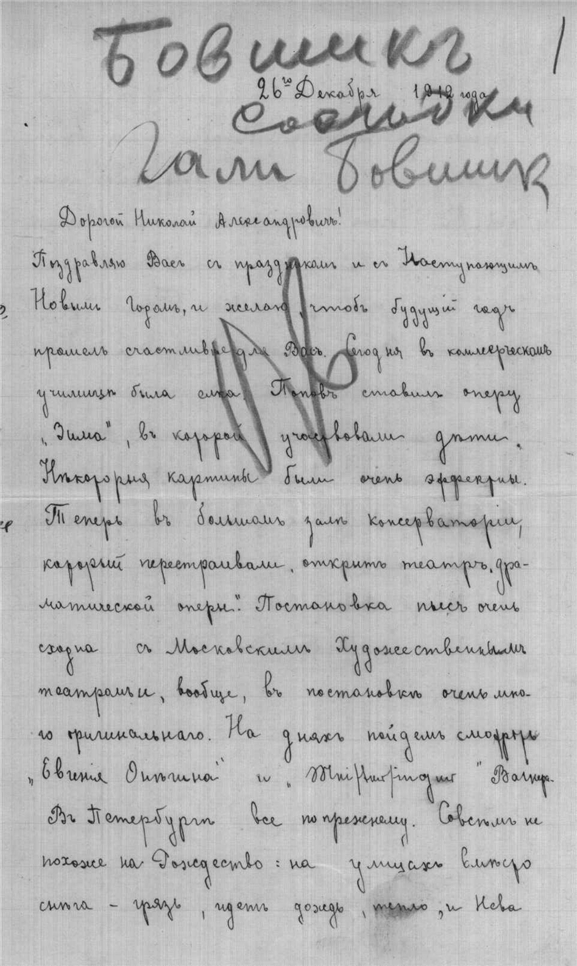 Бовшикъ
1
26го Декабря 1912 года
Гали Бовшик
Дорогой Николай Александровичъ!
Поздравляю Васъ съ праздникомъ и съ Наступающимъ
Новымъ Годомъ, и желаю, чтобъ будущій годъ
прошелъ счастливѣе для Васъ. Сегодня въ коммерческомъ
училищѣ была елка. Поповъ ставилъ оперу
„Зима“, въ которой участвовали дѣти.
Нѣкоторыя картины были очень эффектны.
Теперь въ большомъ залѣ консерваторіи,
который перестраивали, открытъ театръ „дра-
матической оперы“. Постановка пьесъ очень
сходна съ Московскимъ Художественнымъ
театромъ и, вообще, въ постановкѣ очень мно-
го оригинальнаго. На дняхъ пойдемъ смотрѣть
„Евгенія Онѣгина“ и „ “ Вагнера.
Въ Петербургѣ все по прежнему. Совсѣмъ не
похоже на Рождество: на улицахъ вмѣсто
снѣга – грязь, идетъ дождь, тепло, и Нева